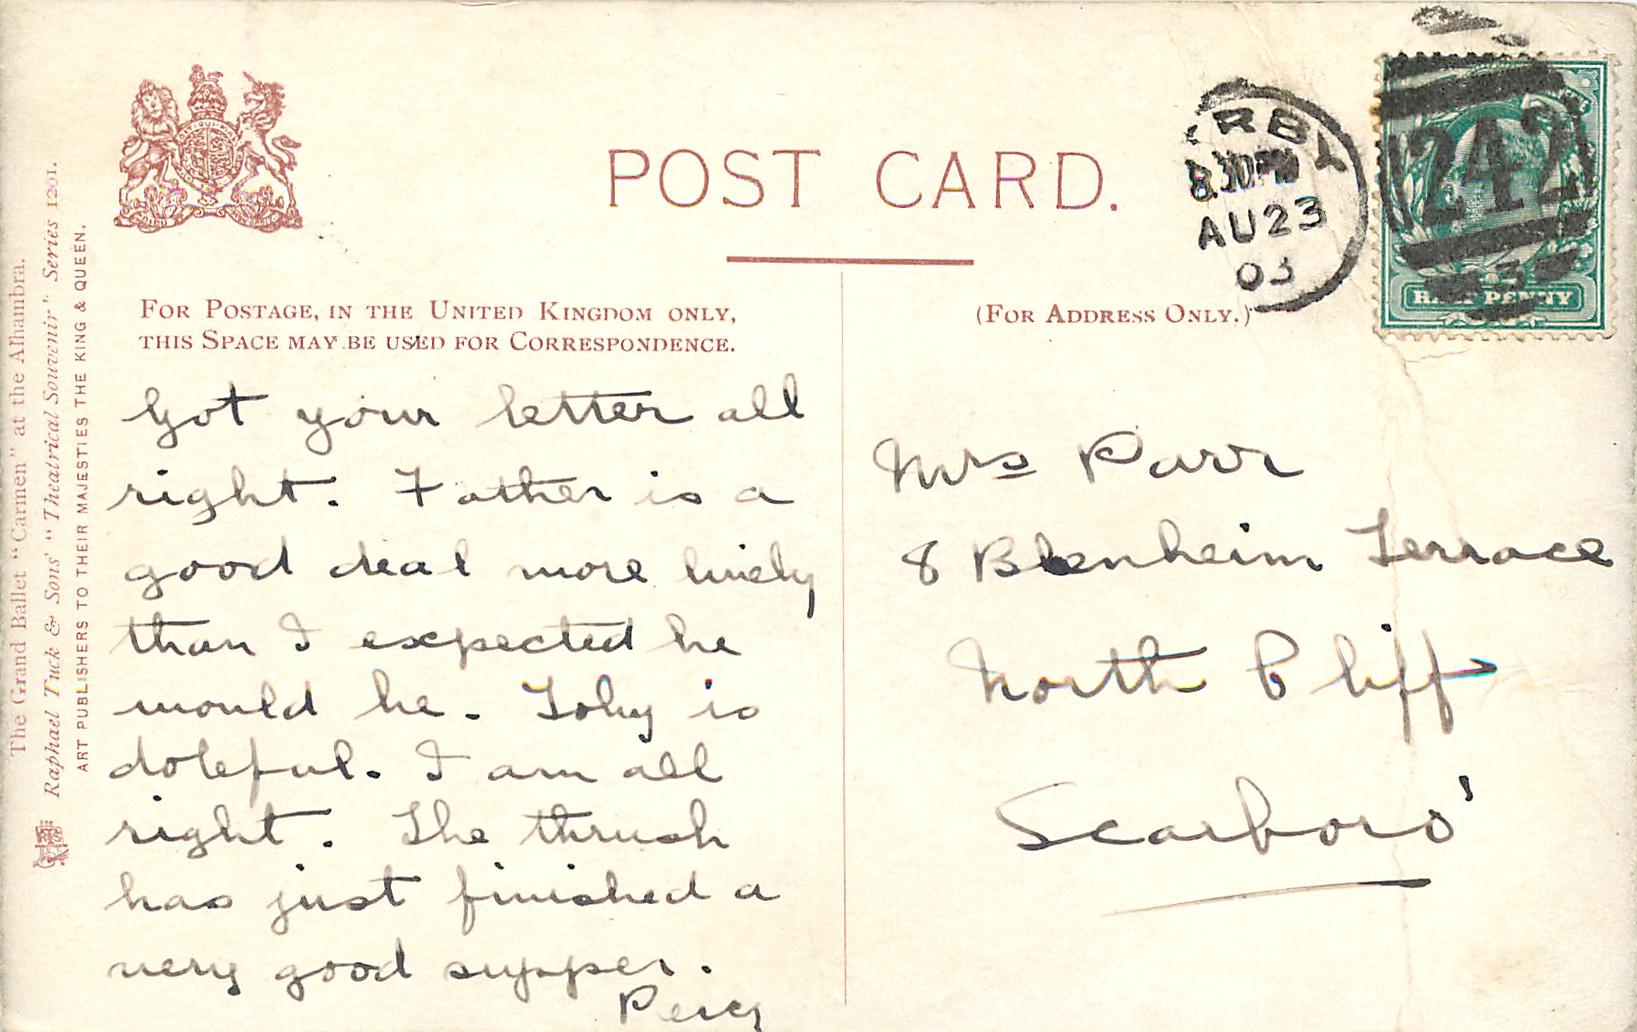 POST CARD.
FOR POSTAGE, IN THE UNITED KINGDOM ONLY,
THIS SPACE MAY BE USED FOR CORRESPONDENCE.
(FOR ADDRESS ONLY.)
The Grand Ballet "Carmen" at the Alhambra.
Raphael Tuck & Sons' "Theatrical Souvenir" Series 1201.
ART PUBLISHERS TO THEIR MAJESTIES THE KING & QUEEN.
RBY
8.30PM
AU23
03
242
HALF PENNY
Got your letter all
right. Father is a
good deal more lively
than I expected he
would be. Toby is
doleful. I am all
right. The thrush
has just finished a
very good supper.
Percy
Mrs Parr
8 Blenheim Terrace
North Cliff
Scarboro'